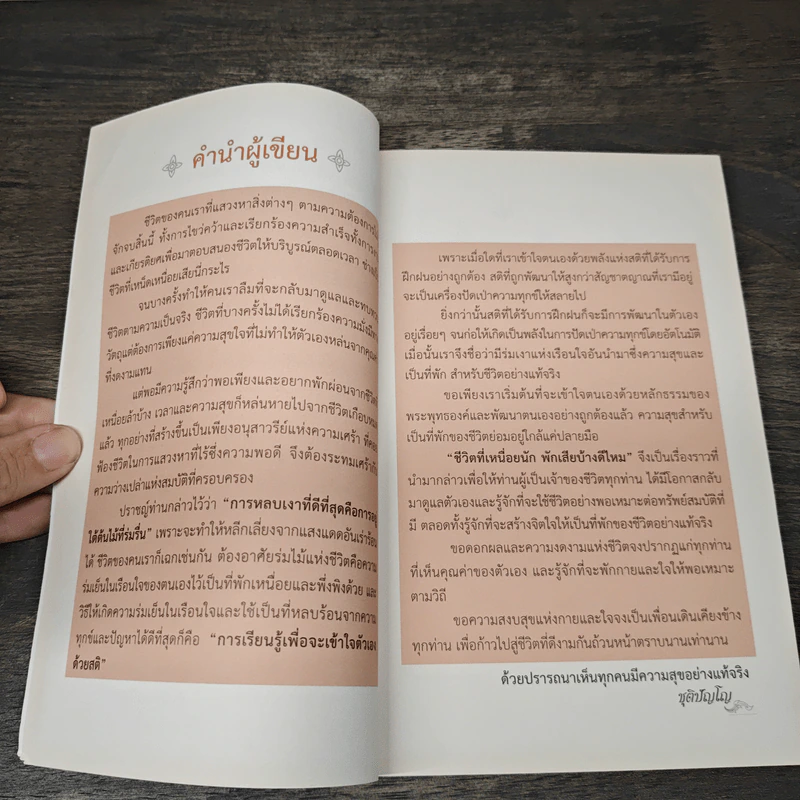 คำนำผู้เขียน
ชีวิตของคนเราที่แสวงหาสิ่งต่างๆ ตามความต้องการ
จักจบสิ้นนี้ ทั้งการไขว่คว้าและเรียกร้องความสำเร็จทั้ง
และเกียรติยศเพื่อมาตอบสนองชีวิตให้บริบูรณ์ตลอดเวลา
ชีวิตที่เหน็ดเหนื่อยเสียนี่กระไร
จนบางครั้งทำให้คนเราลืมที่จะกลับมาดูแลและ
ชีวิตตามความเป็นจริง ชีวิตที่บางครั้งไม่ได้เรียกร้องความมั่งมี
วัตถุแต่ต้องการเพียงแค่ความสุขใจที่ไม่ทำให้ตัวเองหล่นจาก
ที่งดงามแทน
แต่พอมีความรู้สึกว่าพอเพียงและอยากพักผ่อนจาก
เหนื่อยล้าบ้าง เวลาและความสุขก็หล่นหายไปจากชีวิตเกือบ
แล้ว ทุกอย่างที่สร้างขึ้นเป็นเพียงอนุสาวรีย์แห่งความเศร้า
ฟ้องชีวิตในการแสวงหาที่ไร้ซึ่งความพอดี จึงต้องระทมเศร้า
ความว่างเปล่าแห่งสมบัติที่ครอบครอง
ปราชญ์ท่านกล่าวไว้ว่า “การหลบเงาที่ดีที่สุดคือการ
ใต้ต้นไม้ที่ร่มรื่น” เพราะจะทำให้หลีกเลี่ยงจากแสงแดดอันเร่าร้อน
ได้ ชีวิตของคนเราก็เฉกเช่นกัน ต้องอาศัยร่มไม้แห่งชีวิตคือความ
ร่มเย็นในเรือนใจของตนเองไว้เป็นที่พักเหนื่อยและพึ่งพิงด้วย และ
วิธีให้เกิดความร่มเย็นในเรือนใจและใช้เป็นที่หลบร้อนจากความ
ทุกข์และปัญหาได้ดีที่สุดก็คือ “การเรียนรู้เพื่อจะเข้าใจตัวเอง
ด้วยสติ”
เพราะเมื่อใดที่เราเข้าใจตนเองด้วยพลังแห่งสติที่ได้รับการ
ฝึกฝนอย่างถูกต้อง สติที่ถูกพัฒนาให้สูงกว่าสัญชาตญาณที่เรามีอยู่
จะเป็นเครื่องปัดเป่าความทุกข์ให้สลายไป
ยิ่งกว่านั้นสติที่ได้รับการฝึกฝนก็จะมีการพัฒนาในตัวเอง
อยู่เรื่อยๆ จนก่อให้เกิดเป็นพลังในการปัดเป่าความทุกข์โดยอัตโนมัติ
เมื่อนั้นเราจึงชื่อว่ามีร่มเงาแห่งเรือนใจอันนำมาซึ่งความสุขและ
เป็นที่พัก สำหรับชีวิตอย่างแท้จริง
ขอเพียงเราเริ่มต้นที่จะเข้าใจตนเองด้วยหลักธรรมของ
พระพุทธองค์และพัฒนาตนเองอย่างถูกต้องแล้ว ความสุขสำหรับ
เป็นที่พักของชีวิตย่อมอยู่ใกล้แค่ปลายมือ
“ชีวิตที่เหนื่อยนัก พักเสียบ้างดีไหม” จึงเป็นเรื่องราวที่
นำมากล่าวเพื่อให้ท่านผู้เป็นเจ้าของชีวิตทุกท่าน ได้มีโอกาสกลับ
มาดูแลตัวเองและรู้จักที่จะใช้ชีวิตอย่างพอเหมาะต่อทรัพย์สมบัติที่
มี ตลอดทั้งรู้จักที่จะสร้างจิตใจให้เป็นที่พักของชีวิตอย่างแท้จริง
ขอดอกผลและความงดงามแห่งชีวิตจงปรากฏแก่ทุกท่าน
ที่เห็นคุณค่าของตัวเอง และรู้จักที่จะพักกายและใจให้พอเหมาะ
ตามวิถี
ขอความสงบสุขแห่งกายและใจจงเป็นเพื่อนเดินเคียงข้าง
ทุกท่าน เพื่อก้าวไปสู่ชีวิตที่ดีงามกันถ้วนหน้าตราบนานเท่านาน
ด้วยปรารถนาเห็นทุกคนมีความสุขอย่างแท้จริง
ชุติปัญโญ